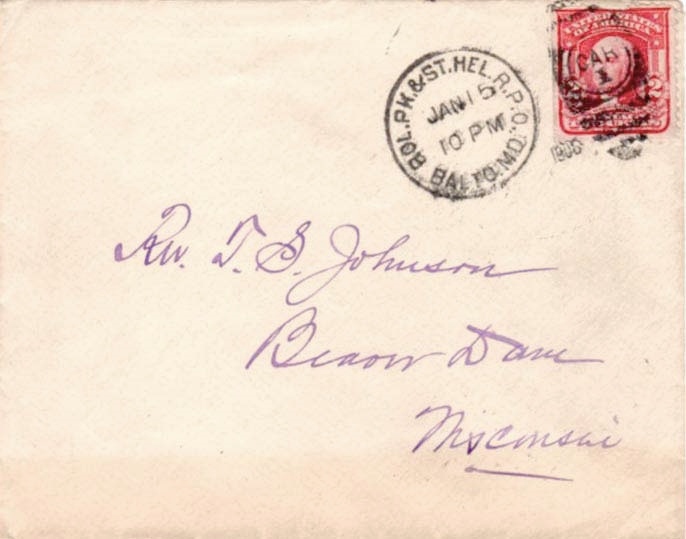 BOL. PK. & ST. HEL. R.P.O.
JAN 15
10 PM
BALTO. MD.
UNITED STATES
OF AMERICA
CAR
1
2
Rev. T. S. Johnson
Beaver Dam
Wisconsin